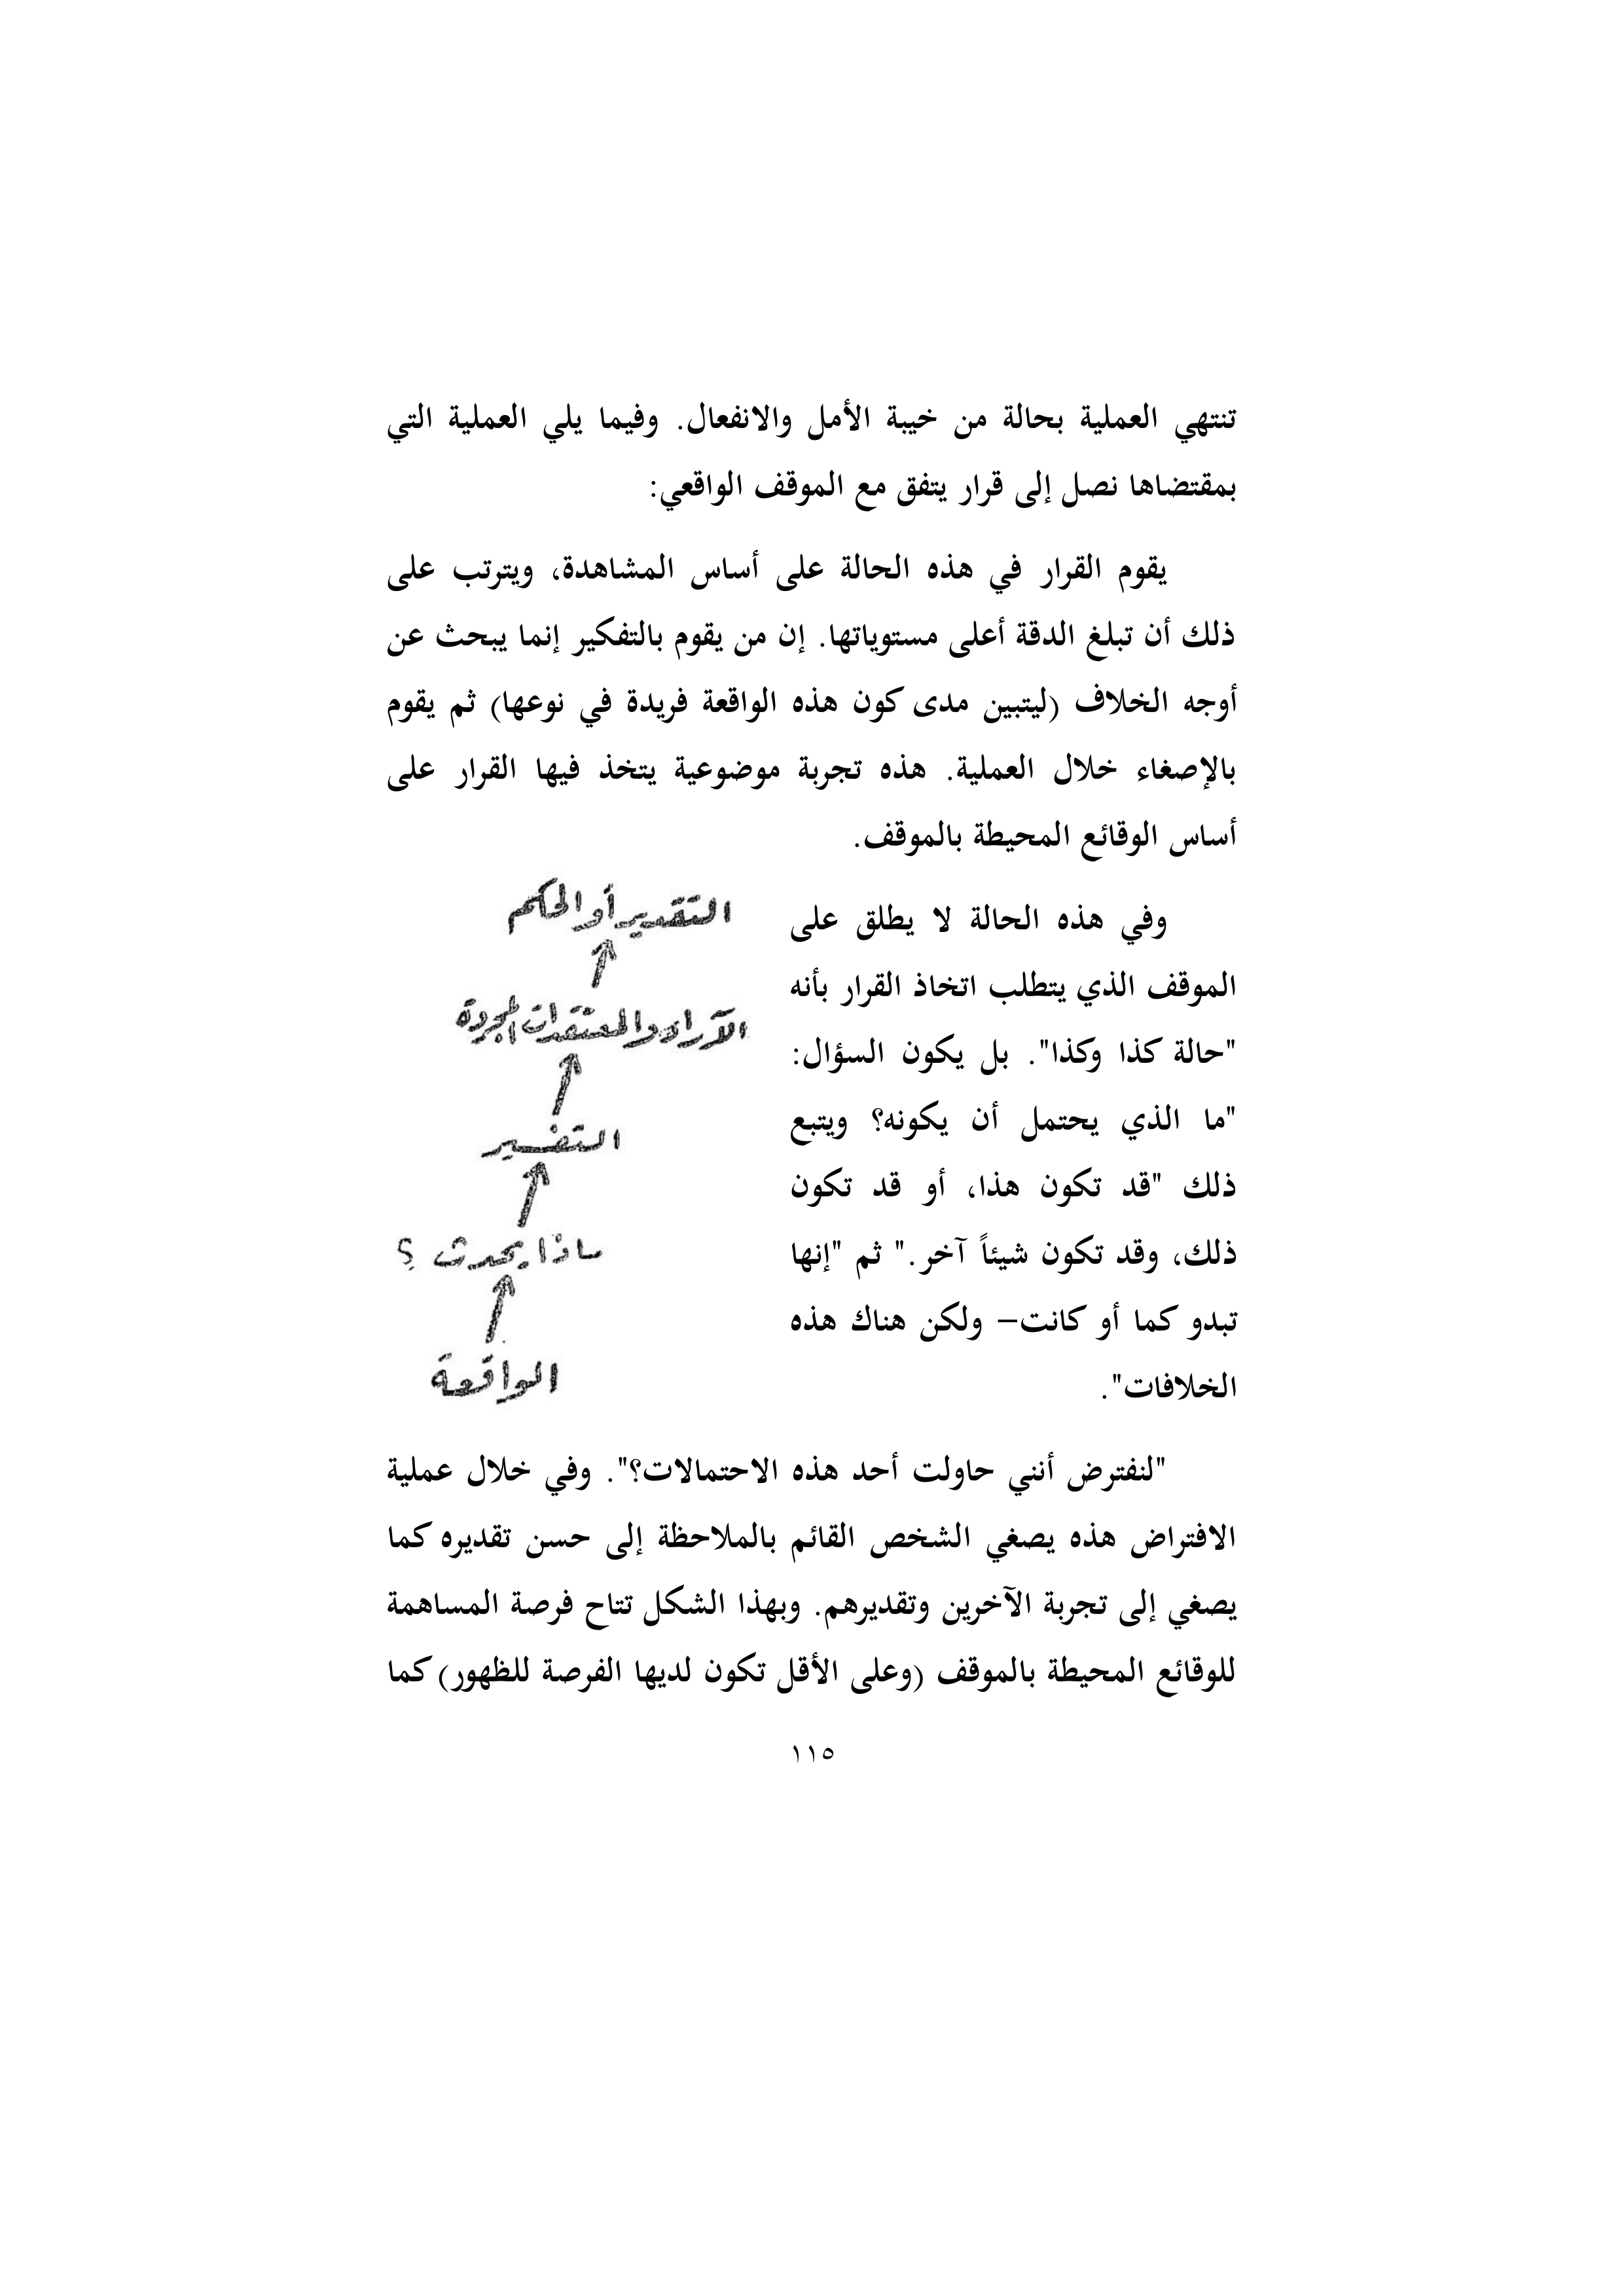 تنتهي العملية بحالة من خيبة الأمل والانفعال. وفيما يلي العملية التي
بمقتضاها نصل إلى قرار يتفق مع الموقف الواقعي:
يقوم القرار في هذه الحالة على أساس المشاهدة، ويترتب على
ذلك أن تبلغ الدقة أعلى مستوياتها. إن من يقوم بالتفكير إنما يبحث عن
أوجه الخلاف (ليتبين مدى كون هذه الواقعة فريدة في نوعها) ثم يقوم
بالإصغاء خلال العملية. هذه تجربة موضوعية يتخذ فيها القرار على
أساس الوقائع المحيطة بالموقف.
وفي هذه الحالة لا يطلق على
الموقف الذي يتطلب اتخاذ القرار بأنه
"حالة كذا وكذا". بل يكون السؤال:
"ما الذي يحتمل أن يكونه؟ ويتبع
ذلك "قد تكون هذا، أو قد تكون
ذلك، وقد تكون شيئاً آخر." ثم "إنها
تبدو كما أو كانت– ولكن هناك هذه
الخلافات".
التقدير أو الحكم
الآراء والمعتقدات المجردة
التفسير
ماذا يحدث ؟
الواقعة
"لنفترض أنني حاولت أحد هذه الاحتمالات؟". وفي خلال عملية
الافتراض هذه يصغي الشخص القائم بالملاحظة إلى حسن تقديره كما
يصغي إلى تجربة الآخرين وتقديرهم. وبهذا الشكل تتاح فرصة المساهمة
للوقائع المحيطة بالموقف (وعلى الأقل تكون لديها الفرصة للظهور) كما
١١٥